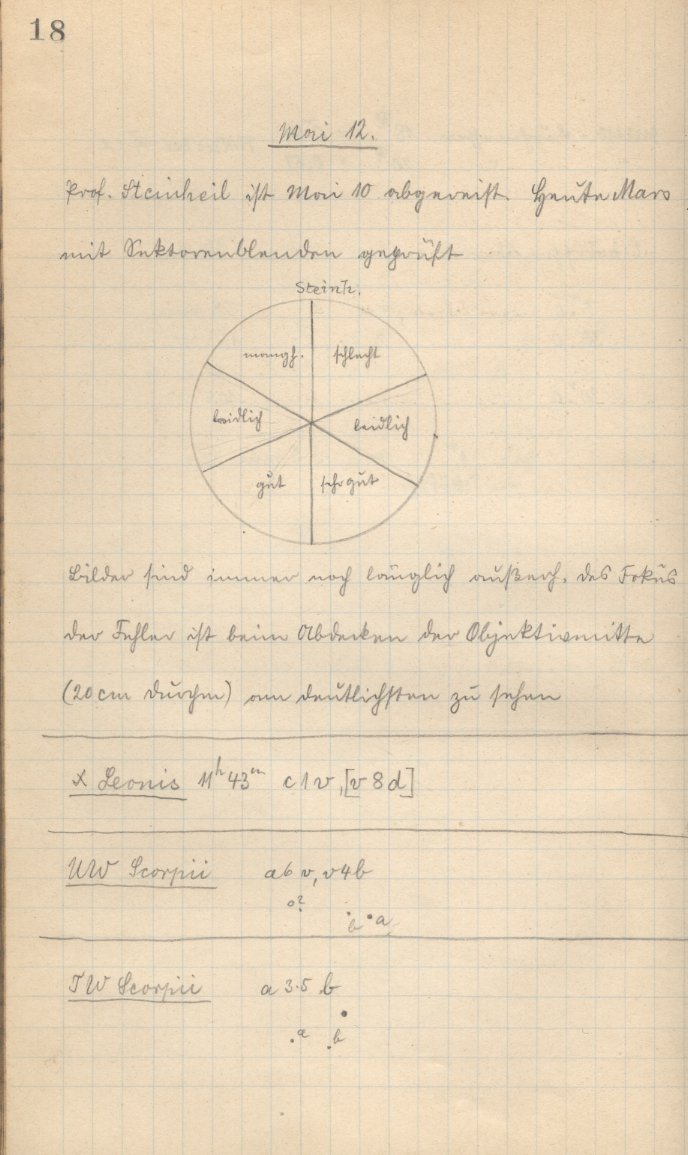 18
Mai 12.
Prof. Steinheil ist Mai 10 abgereist. Heute Mars
mit Sektorenblenden geprüft
Steinh.
mangh. schlecht
leidlich leidlich
gut sehr gut
Bilder sind immer noch länglich außerh. des Fokus
der Fehler ist beim Abdecken der Objektivmitte
(20 cm Durchm) am deutlichsten zu sehen
X Leonis 11h 43m c 1 v, [v 8 d]
UW Scorpii a 6 v, v 4 b
o?
b a
TW Scorpii a 3.5 b
a b